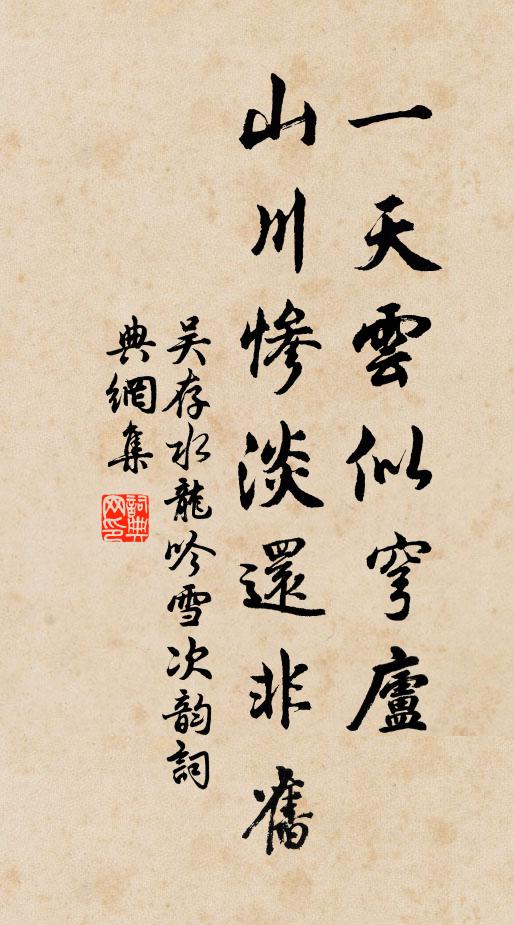 一天雲似穹廬
山川慘淡還非舊
吴存水龍吟雪次韵詞
典網集
詞典網印